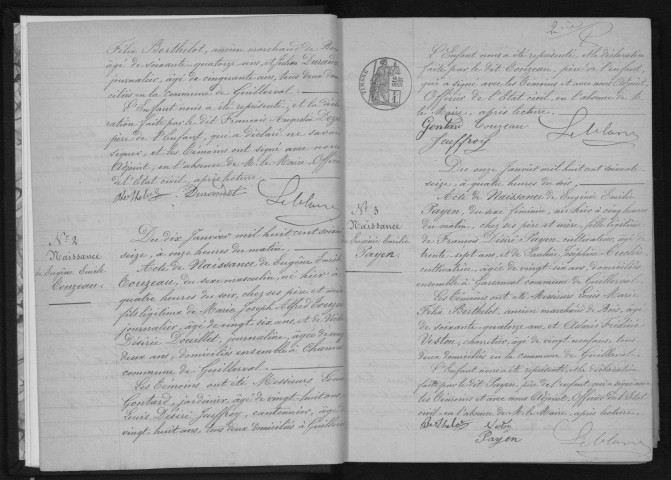 Félix Berthelot, ancien marchand de
âgé de soixante-quatorze ans, et Julien
journalier, âgé de cinquante ans, tous deux
ciliés en la commune de Guillerval.
L'Enfant nous a été représenté, et la décla
ration faite par le dit François Auguste
père de l'Enfant, qui a déclaré ne savoir
signer, et les témoins ont signé avec nous
Adjoint, en l'absence de M. le Maire, Officier
de l'Etat civil, après lecture.
Berthelot Leblanc
N° 2
Naissance
de Eugène Emile
Touzeau.
Du dix Janvier mil huit cent soixante
seize, à onze heures du matin.
Acte de Naissance de Eugène Emile
Touzeau, du sexe masculin, né hier à
quatre heures du soir, chez ses père et mère
fils légitime de Marie Joseph Alfred Touzeau
journalier, âgé de vingt-six ans et de
Désirée Douillet, journalière, âgée de vingt
deux ans, domiciliés ensemble à
commune de Guillerval.
Les témoins ont été Messieurs Louis
Gontard, jardinier, âgé de vingt-huit ans
Louis Désiré Jouffroy, cantonnier, âgé
vingt-huit ans, tous deux domiciliés à Guillerval
L'Enfant nous a été représenté, et la déclaration
faite par le dit Touzeau, père de l'enfant,
qui a signé avec les témoins et avec nous Adjoint
Officier de l'Etat civil, en l'absence de M.
le Maire, après lecture.
Gontard Touzeau
Jouffroy Leblanc
N° 3
Naissance
de Eugénie Emilie
Payen.
Du onze Janvier mil huit cent soixante
seize, à quatre heures du soir,
Acte de Naissance de Eugénie Emilie
Payen, du sexe féminin, née hier à cinq heures
du matin, chez ses père et mère, fille légitime
de François Désiré Payen, cultivateur, âgé de
trente sept ans et de Pauline Joséphine
cultivatrice, âgée de vingt-six ans, domiciliés
ensemble à Garsanval commune de Guillerval.
Les témoins ont été Messieurs Louis Marie
Félix Berthelot, ancien marchand de
de soixante-quatorze ans, et
charretier, âgé de vingt neuf ans, tous
deux domiciliés en la commune de Guillerval.
L'Enfant nous a été représenté, et la déclaration
faite par le dit Payen, père de l'enfant qui a signé avec
les témoins et avec nous Adjoint, Officier de l'Etat
civil, en l'absence de M. le Maire, après lecture.
Berthelot
Payen Leblanc